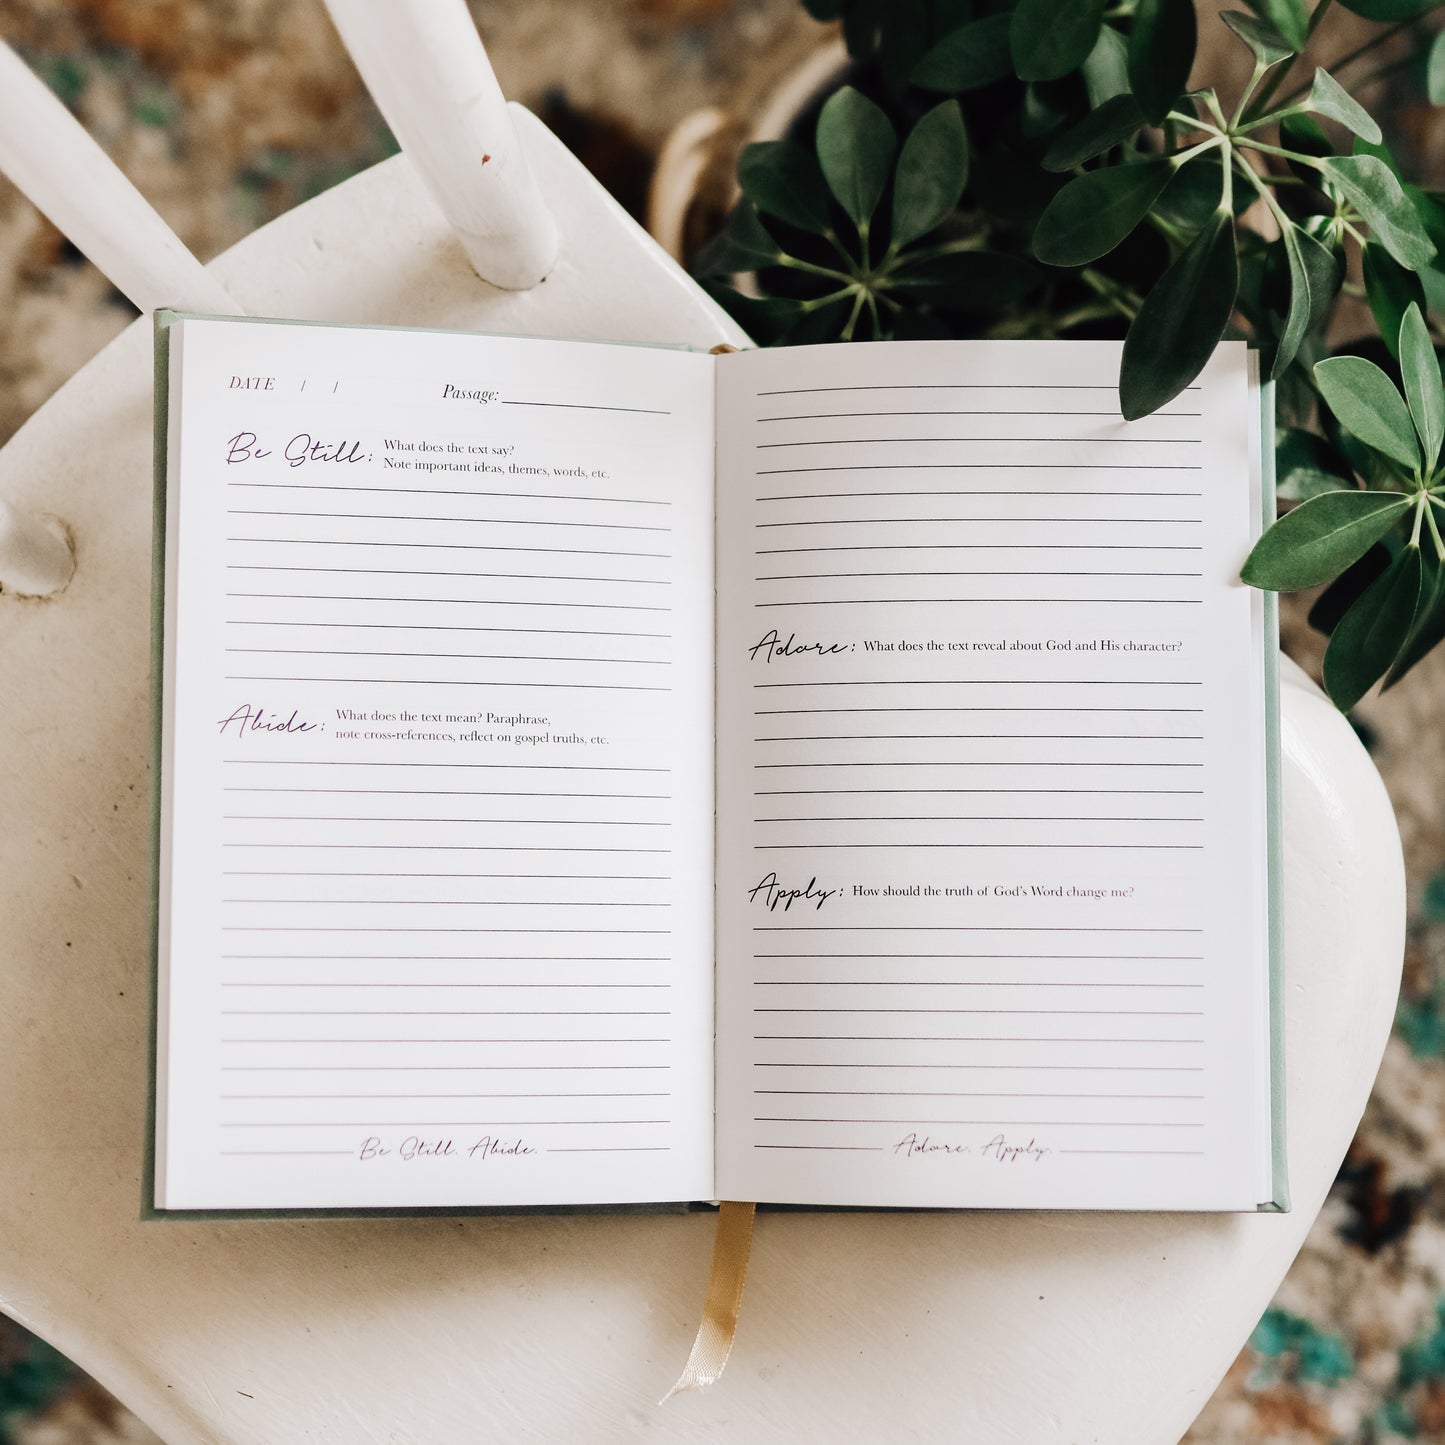 DATE / / Passage:
Be Still: What does the text say?
Note important ideas, themes, words, etc.
Abide: What does the text mean? Paraphrase,
note cross-references, reflect on gospel truths, etc.
Be Still. Abide.
Adore: What does the text reveal about God and His character?
Apply: How should the truth of God's Word change me?
Adore. Apply.